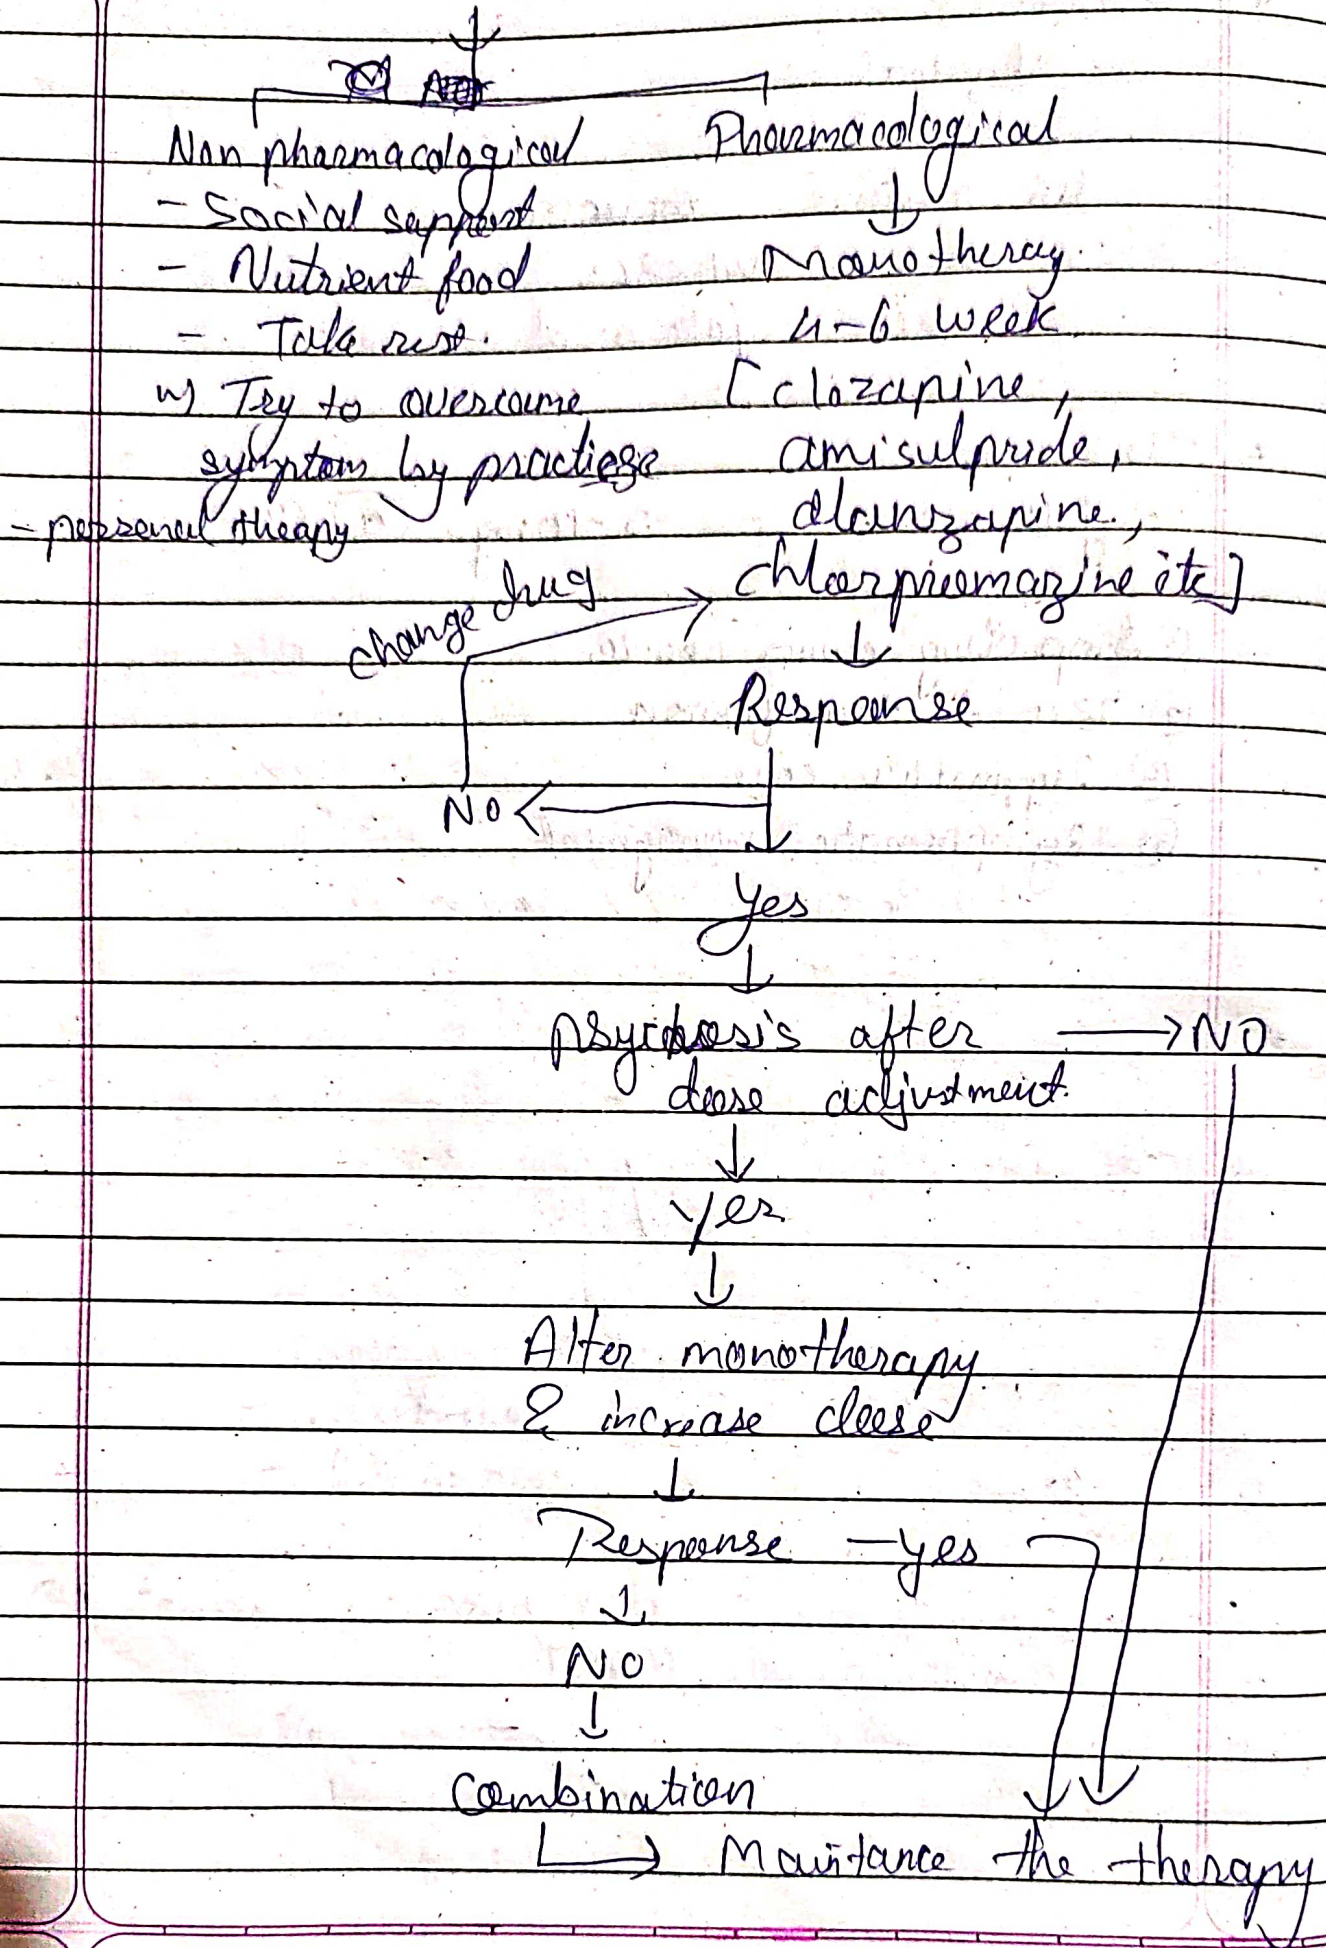 Non pharmacological
- Social support
- Nutrient food
- Take rest.
Try to overcome
symptom by practiese
- personal theapy
Pharmacological
Monotheray
4-6 week
[clozapine,
amisulpride,
olanzapine,
chlorpromazine etc]
change drug
Response
NO
Yes
psychosis after
NO
dose adjustment.
Yes
Alter monotherapy
& increase dose
Response - yes
NO
Combination
Maintance the therapy